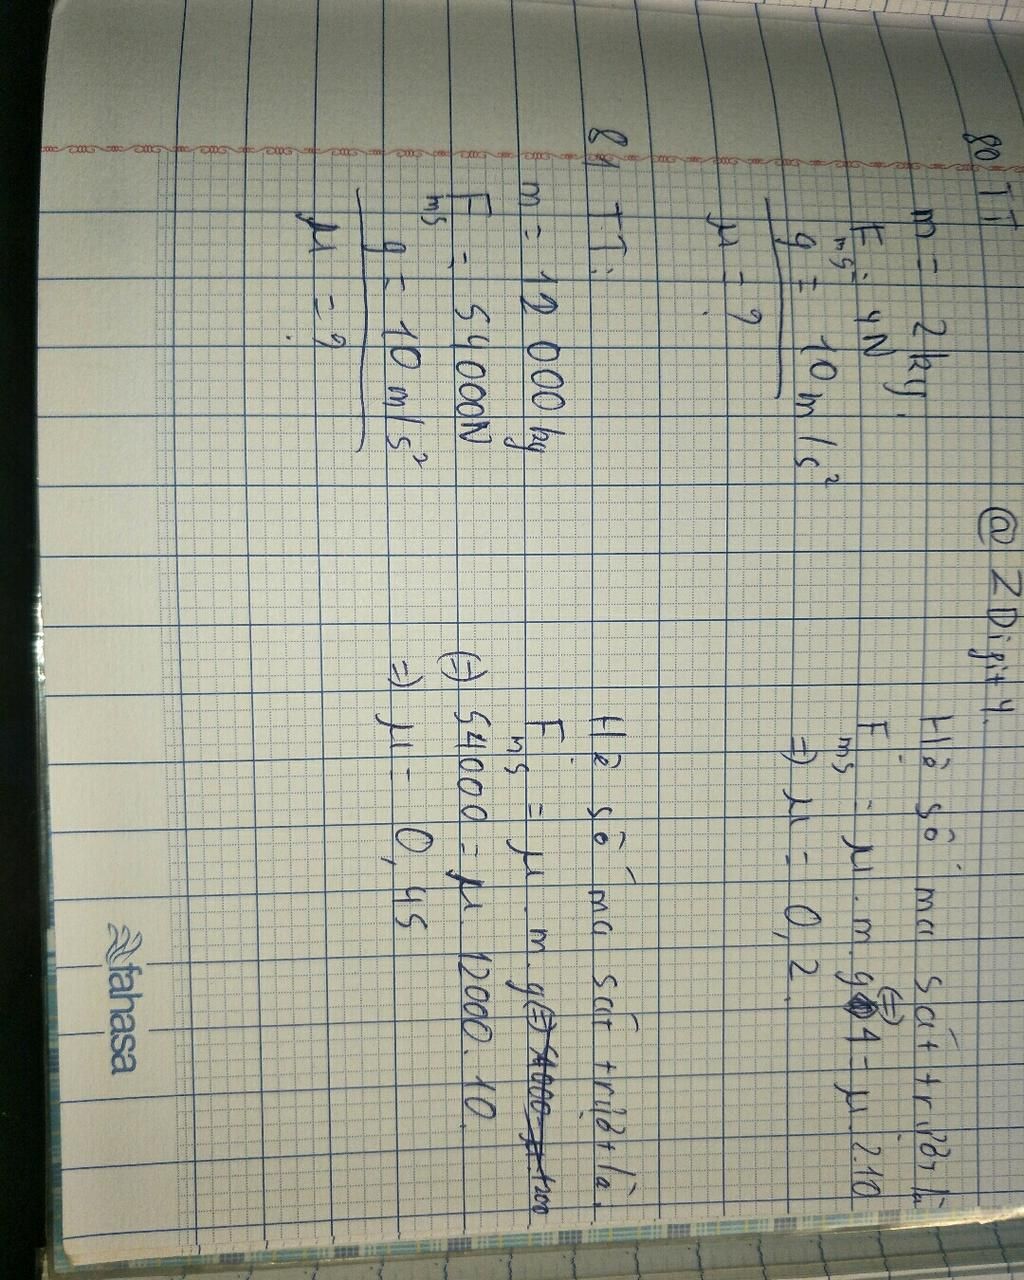 @ZDigit4.
80 TT
m = 2kg.
Fms = 4N
g = 10 m/s²
μ = ?
Hệ số ma sát trượt là
Fms = μ.m.g (=) 4 = μ.2.10
=) μ = 0,2.
81 TT:
m = 12000kg
Fms = 54000N
g = 10 m/s²
μ = ?
Hệ số ma sát trượt là:
Fms = μ.m.g (=)
(=) 54000 = μ.12000.10.
=) μ = 0,45
fahasa